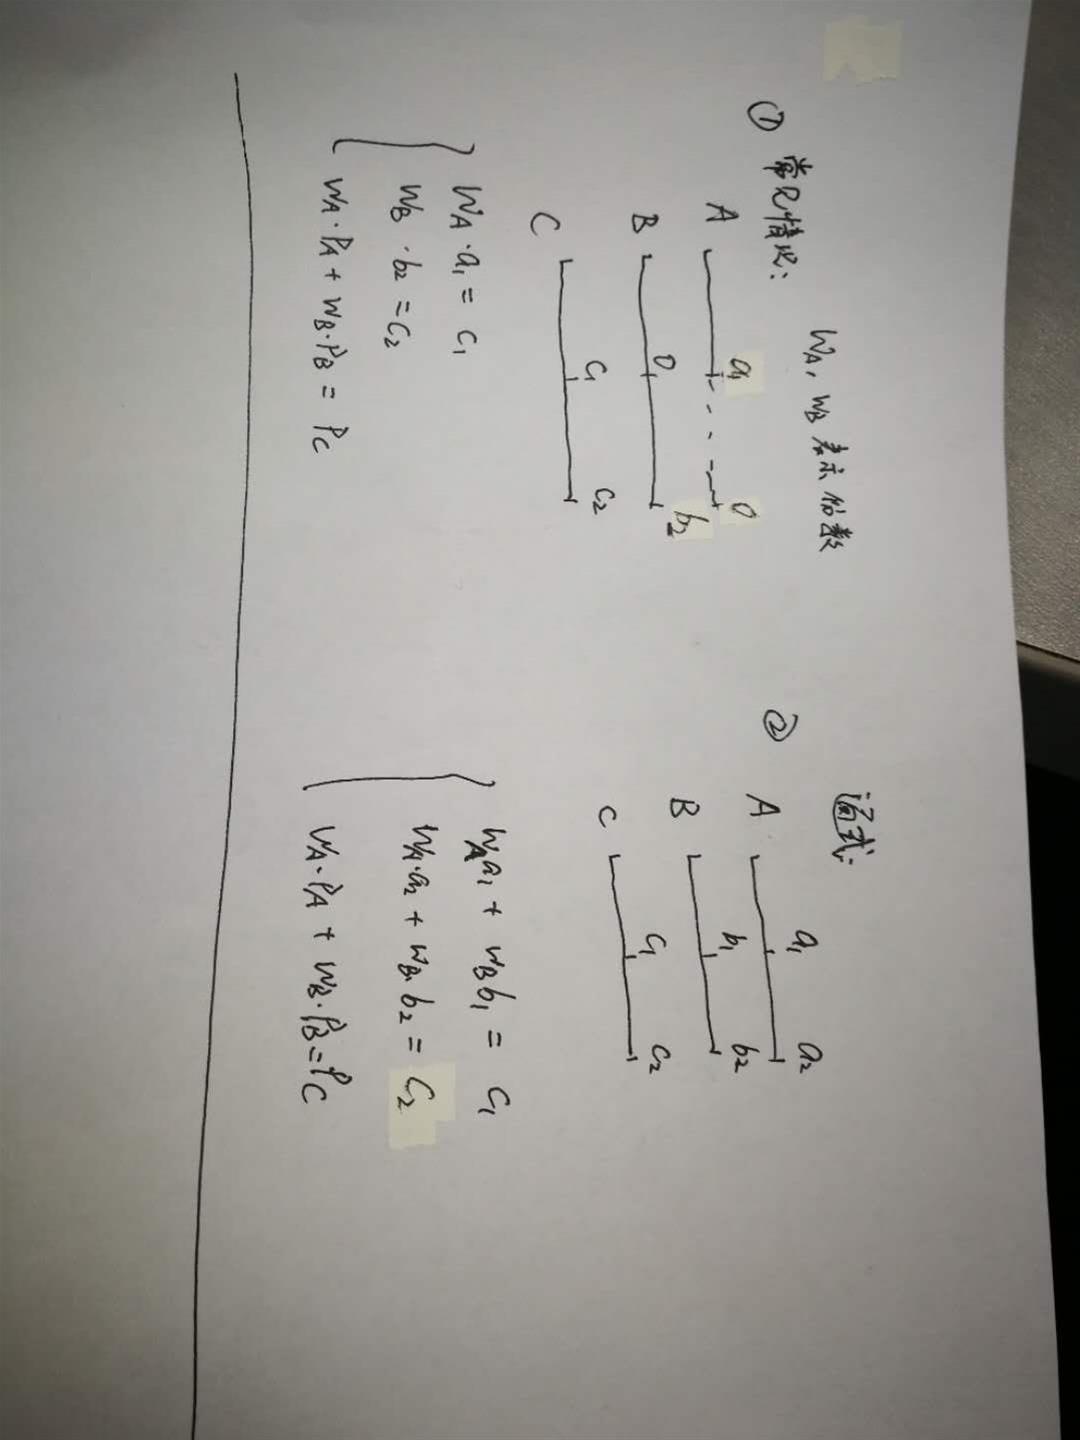 ① 常见情况:
W_A, W_B 表示份数
A a₁ 0
B 0 b₂
C c₁ c₂
W_A·a₁ = c₁
W_B·b₂ = c₂
W_A·P_A + W_B·P_B = P_C
② 通式:
A a₁ a₂
B b₁ b₂
C c₁ c₂
W_A a₁ + W_B b₁ = c₁
W_A·a₂ + W_B·b₂ = c₂
W_A·P_A + W_B·P_B = P_C